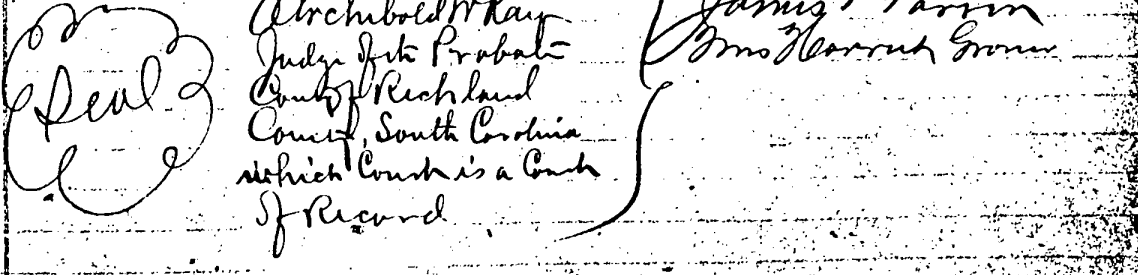 Archibold McKay
Judge of the Probate
Court of Richland
County, South Carolina
which Court is a Court
of Record
Seal
James
Mrs Harriet